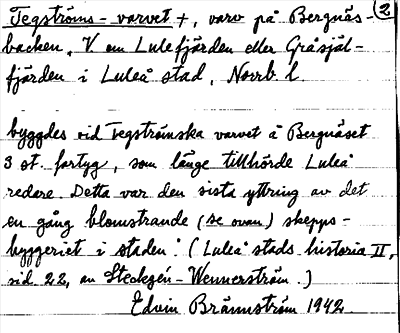 Tegströms-varvet +, varv på Bergnäs- (2
backen, V om Lulefjärden eller Gråsjäl-
fjärden i Luleå stad, Norrb. l.
byggdes vid Tegströmska varvet å Bergnäset
3 st. fartyg, som länge tillhörde Luleå
redare. Detta var den sista yttring av det
en gång blomstrande (se ovan) skepps-
byggeriet i staden." (Luleå stads historia II,
sid. 22, av Steckzén-Wennerström.)
Edvin Brännström 1942.